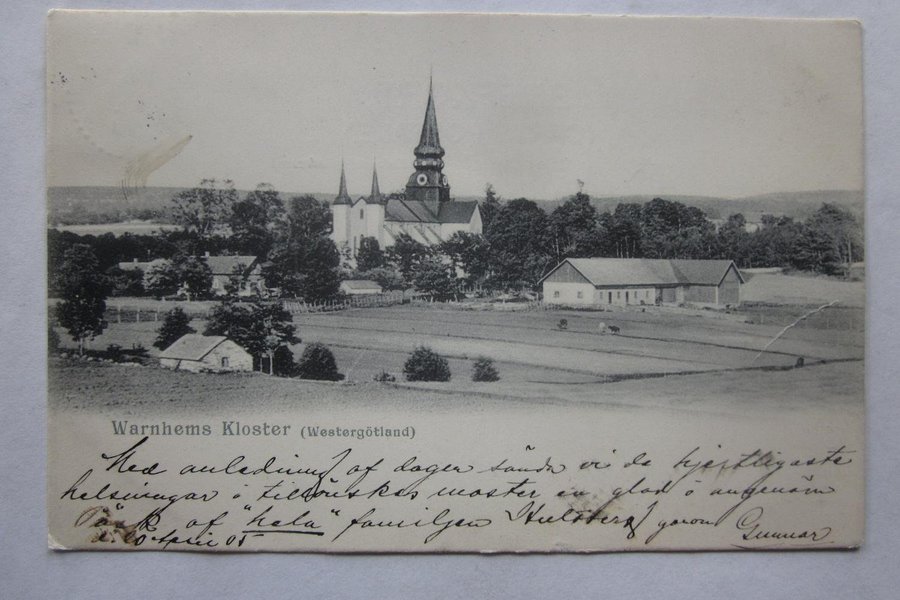 Warnhems Kloster (Westergötland)
Med anledning af dagen sända vi de hjertligaste
helsningar o tillönskas moster en glad o angenäm
Påsk af "hela" familjen genom Gunnar
April 05